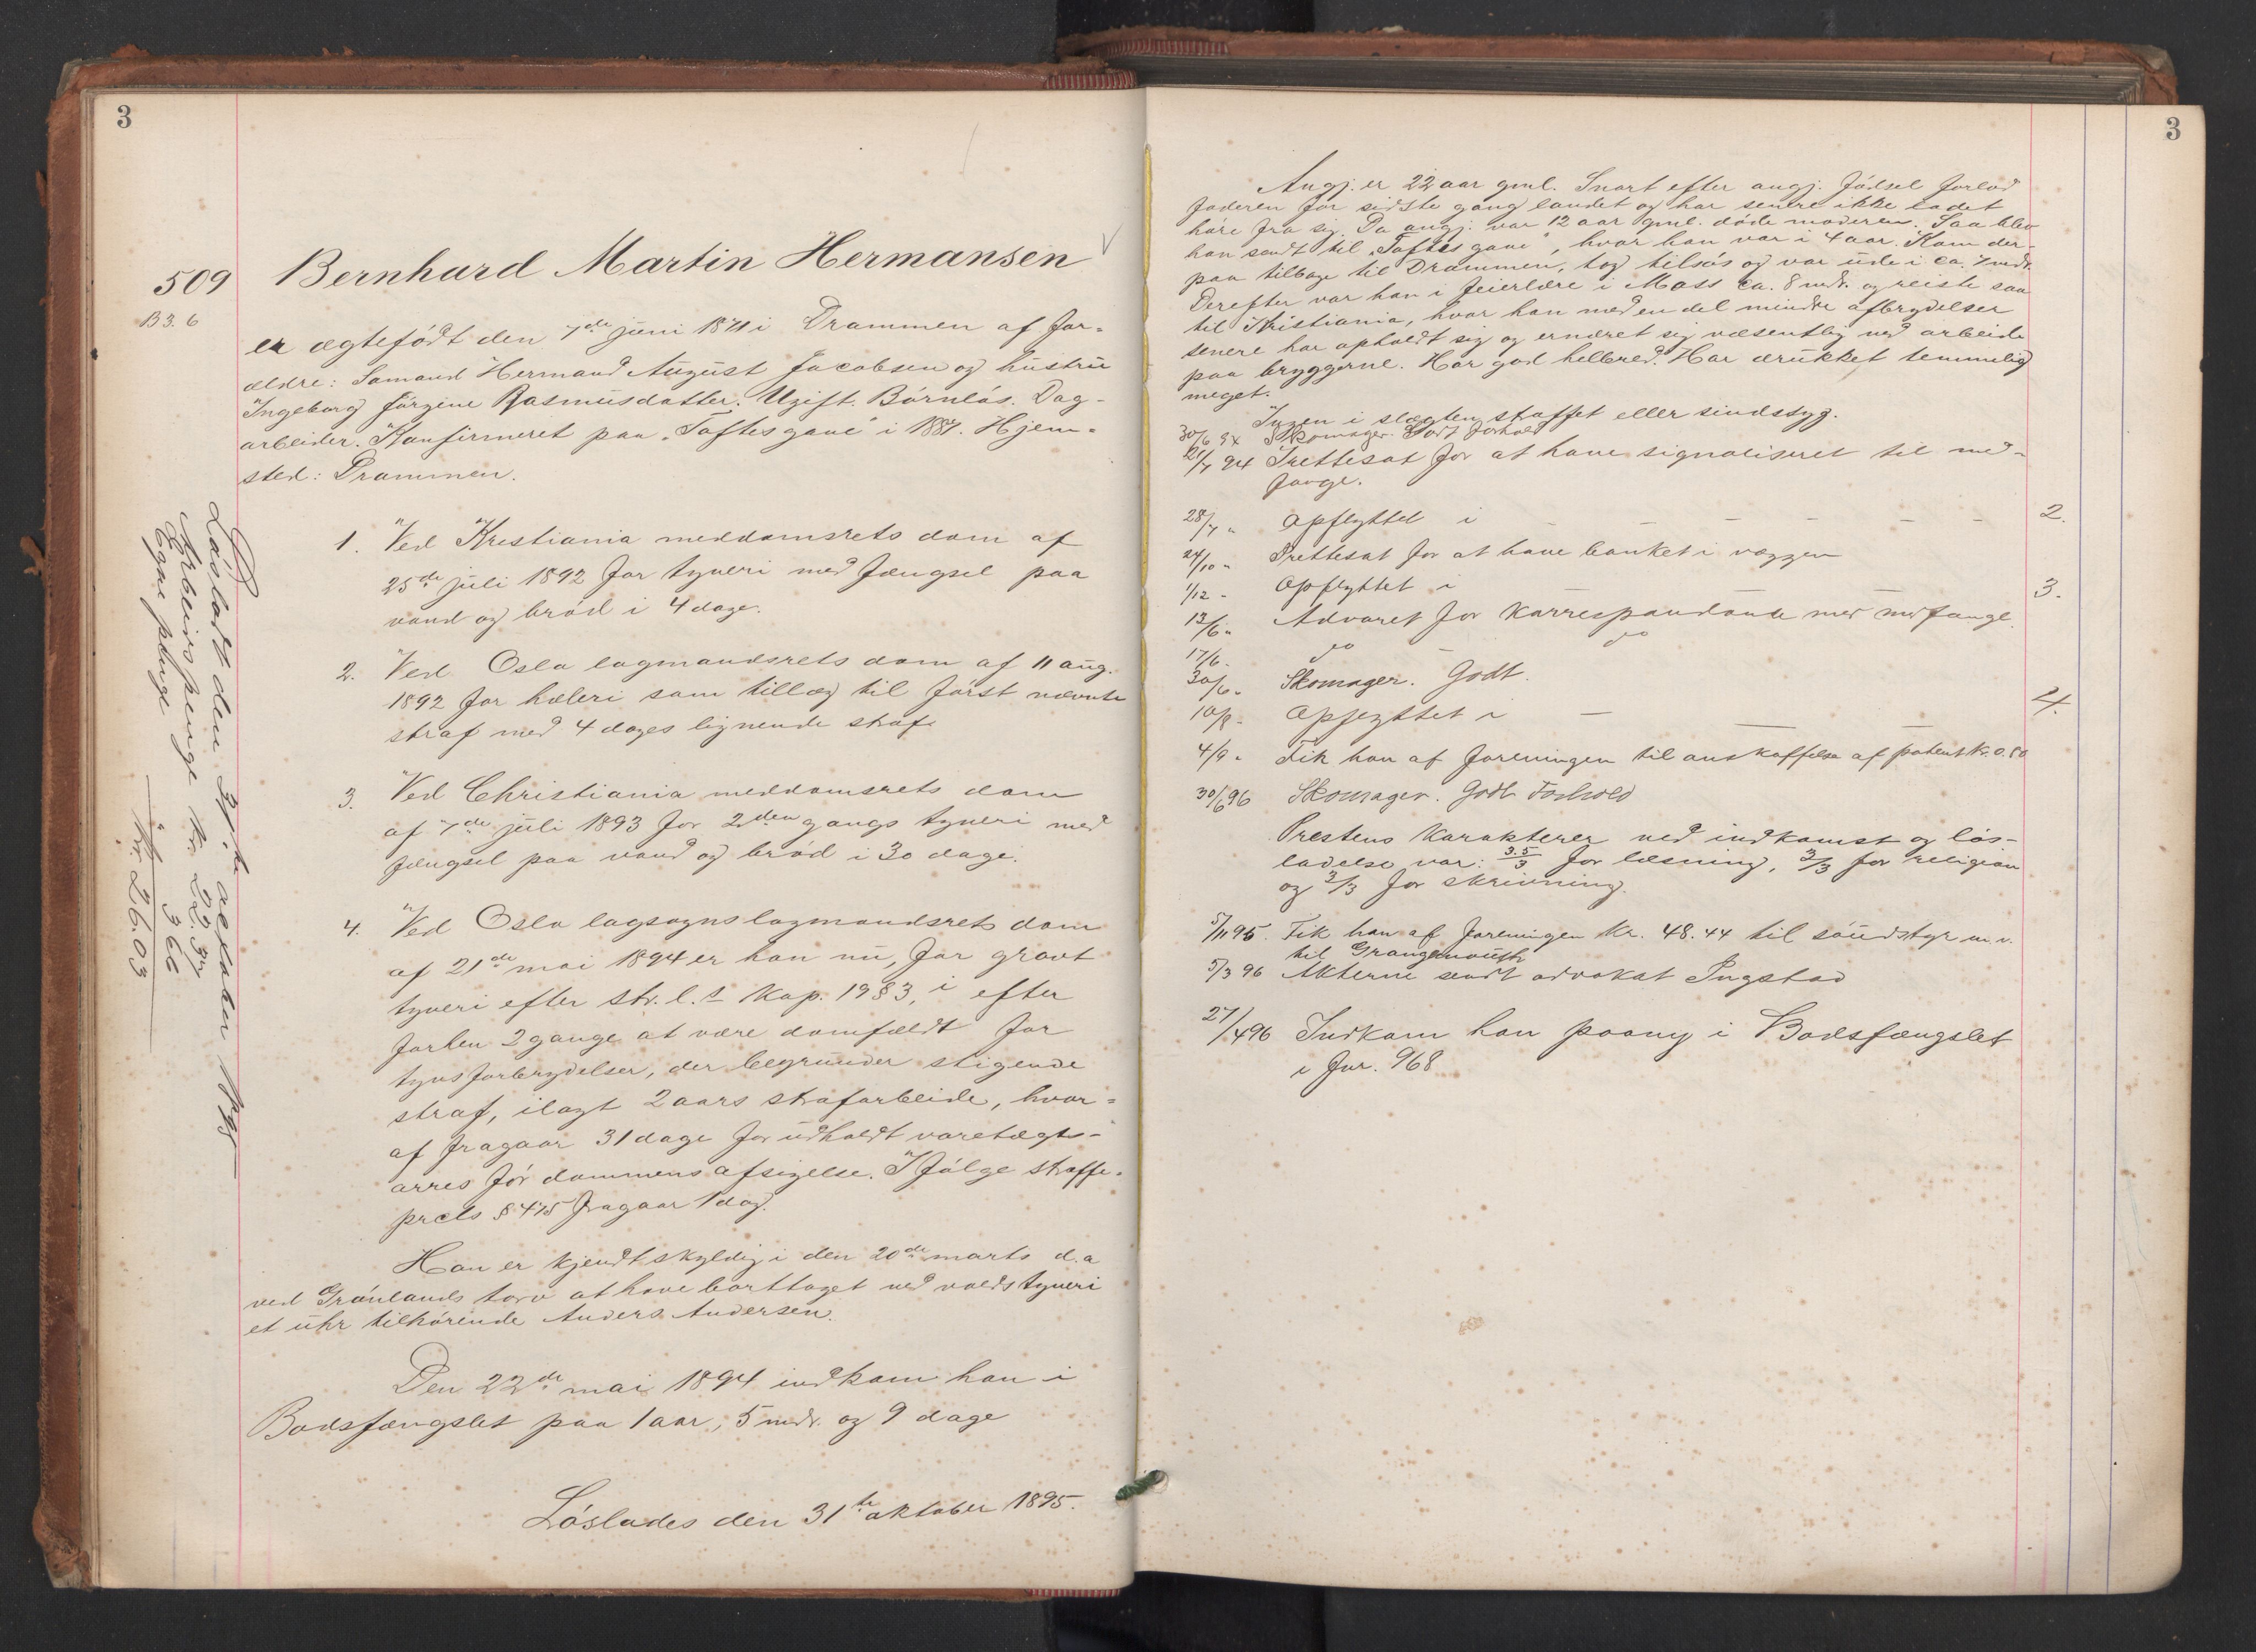 3
509
B 3. 6
Bernhard Martin Hermansen
er ægtefödt den 7de juni 1871 i Drammen af for-
ældre: Sömand Hermand August Jacobsen og hustru
Ingeborg Jörgine Rasmusdatter. Ugift. Börnlös. Dag-
arbeider. Konfirmeret paa "Toftes gave" i 1887. Hjem-
sted: Drammen.
1. Ved Kristiania meddomsrets dom af
25de juli 1892 for tyveri med fængsel paa
vand og bröd i 4 dage.
2. Ved Oslo lagmandsrets dom af 11 aug.
1892 for hæleri som tillæg til först nævnte
straf med 4 dages lignende straf.
3. Ved Christiania meddomsrets dom
af 7de juli 1893 for 2den gangs tyveri med
fængsel paa vand og bröd i 30 dage.
4. Ved Oslo lagsogns lagmandsrets dom
af 21de mai 1894 er han nu, for grovt
tyveri efter str. l.s kap. 19 § 3, i efter
forhen 2 gange at være domfældt for
tyvsforbrydelser, der begrunder stigende
straf, ilagt 2 aars strafarbeide, hvor-
af fragaar 31 dage for udholdt varetægts-
arres för dommens afsigelse. Ifölge straffe-
prcls § 475 fragaar 1 dag.
Han er kjendt skyldig i den 20de marts d. a
ved Grönlands torv at have borttaget ved voldstyveri
et uhr tilhörende Anders Andersen.
Den 22de mai 1894 indkom han i
Bodsfængslet paa 1 aar, 5 mdr. og 9 dage
Löslades den 31te oktober 1895.
Lösladt den 31te oktober 1895
Arbeidspenge kr. 22.37
Egne penge " 3 66
Kr. 26.03
3
Angj. er 22 aar gml. Snart efter angj. födsel forlod
faderen for sidste gang landet og har senere ikke ladet
höre fra sig. Da angj. var 12 aar gml. döde moderen. Saa blev
han sendt til "Toftes gave", hvor han var i 4 aar. Kom der-
paa tilbage til Drammen, tog tilsös og var ude i ca. 7 mdr.
Derefter var han i feierlære i Moss ca. 8 mdr. og reiste saa
til Kristiania, hvor han med en del mindre afbrydelser
senere har opholdt sig og ernæret sig væsentlig ved arbeide
paa bryggerne. Har god helbred. Har drukket temmelig
meget.
Ingen i slægten straffet eller sindssyg.
30/6 94 Skomager. Godt forhold
21/7 94 Irettesat for at have signaliseret til med-
fange.
28/7 " Opflyttet i — — — — — — 2.
24/10 " Irettesat for at have banket i væggen
1/12 - Opflyttet i — — — 3.
13/6 " Advaret for korrespondance med medfange.
17/6 - do do
30/6 " Skomager. Godt.
10/8 - Opflyttet i — — — 4.
4/9 " Fik han af foreningen til anskaffelse af patent Kr. 0.80
30/6 96 Skomager. Godt Forhold
Prestens karakterer ved indkomst og lös-
ladelse var: 3.5/3 for læsning, 3/3 for religion
og 3/3 for skrivning.
5/11 95. Fik han af foreningen Kr. 48.44 til söudstyr m. v.
til Grangemouth
5/3 96 Akterne sendt advokat Ingstad
27/4 96 Indkom han paany i Bodsfængslet
i Jnr. 968